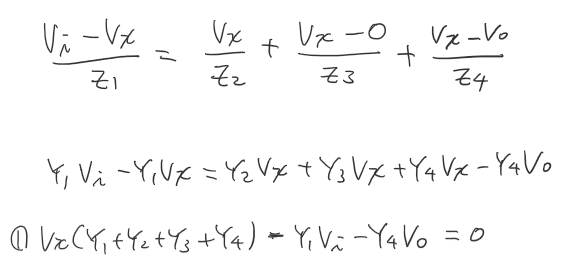 (Vi - Vx)/Z1 = Vx/Z2 + (Vx - 0)/Z3 + (Vx - Vo)/Z4
Y1 Vi - Y1Vx = Y2Vx + Y3Vx + Y4Vx - Y4Vo
① Vx(Y1+Y2+Y3+Y4) - Y1Vi - Y4Vo = 0